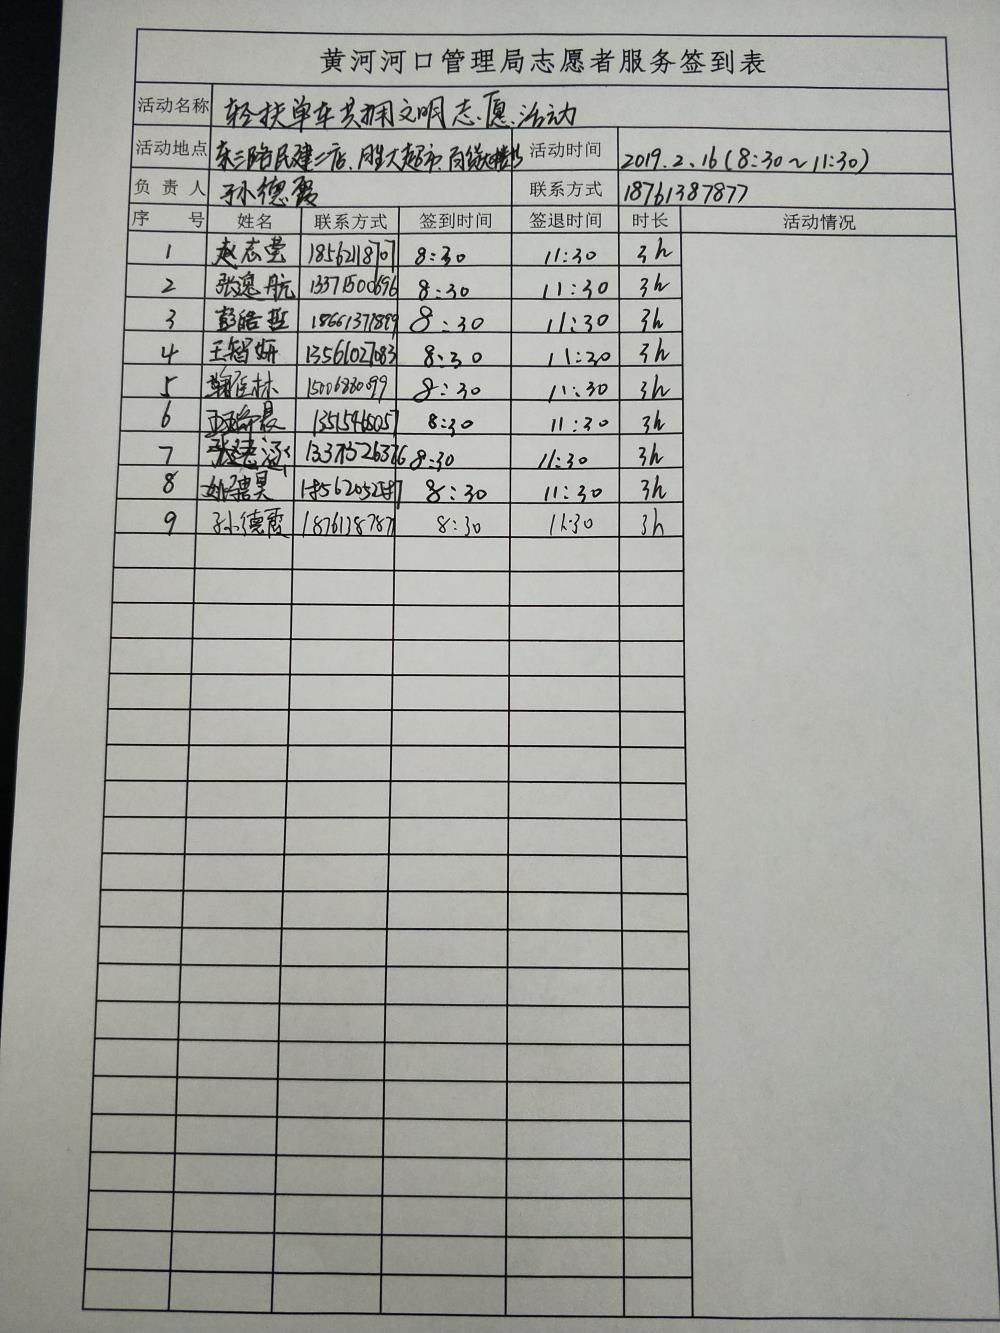 黄河河口管理局志愿者服务签到表
活动名称 轻扶单车共拥文明志愿活动
活动地点 东三路民建二店、胜大超市、百货大楼 活动时间 2019.2.16(8:30~11:30)
负责人 孙德霞 联系方式 18761387877
序号 姓名 联系方式 签到时间 签退时间 时长 活动情况
1 赵志莹 18562118707 8:30 11:30 3h
2 张逸航 13371500696 8:30 11:30 3h
3 彭皓哲 18661377899 8:30 11:30 3h
4 王智妍 13561027083 8:30 11:30 3h
5 林 15006830099 8:30 11:30 3h
6 8:30 11:30 3h
7 张 涵 8:30 11:30 3h
8 昊 8:30 11:30 3h
9 孙德霞 1876138787 8:30 11:30 3h